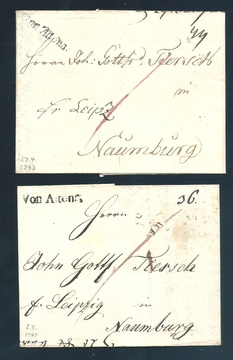 Von Altona.
44
Herrn Joh: Gottfr. Tiersch
in
fr Leipz
Naumburg
27.4.
1793
Von Altona.
36.
Herrn
John Gottf. Tiersch
f. Leipzig in
Naumburg